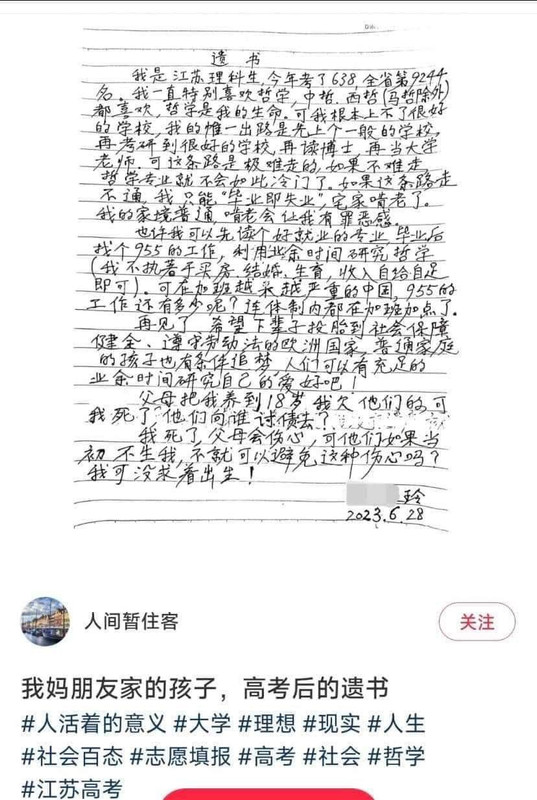 遗书
我是江苏理科生,今年考了638,全省第9244
名。我一直特别喜欢哲学,中哲、西哲(马哲除外)
都喜欢,哲学是我的生命。可我根本上不了很好
的学校,我的惟一出路是先上个一般的学校,
再考研到很好的学校,再读博士,再当大学
老师。可这条路是极难走的,如果不难走
哲学专业就不会如此冷门了。如果这条路走
不通,我只能“毕业即失业”,宅家啃老了。
我的家境普通,啃老会让我有罪恶感。
也许我可以先读个好就业的专业,毕业后
找个955的工作,利用业余时间研究哲学
(我不执著于买房、结婚、生育,收入自给自足
即可)。可在加班越来越严重的中国,955的
工作还有多少呢?连体制内都在加班加点了。
再见了,希望下辈子投胎到社会保障
健全、遵守劳动法的欧洲国家,普通家庭
的孩子也有条件追梦,人们可以有充足的
业余时间研究自己的爱好吧!
父母把我养到18岁,我欠他们的,可
我死了,他们向谁讨债去?
我死了,父母会伤心,可他们如果当
初不生我,不就可以避免这种伤心吗?
我可没求着出生!
玲
2023.6.28
人间暂住客
关注
我妈朋友家的孩子,高考后的遗书
#人活着的意义 #大学 #理想 #现实 #人生
#社会百态 #志愿填报 #高考 #社会 #哲学
#江苏高考